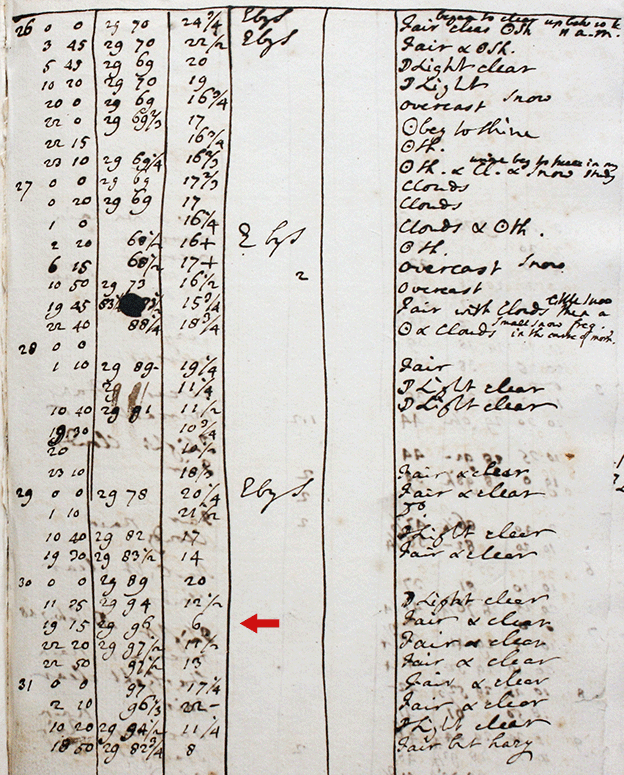 26 0 0 29 70 24 3/4 E by S Fair clear ☉ sh began to clear up below 10 &
11 a.m.
3 45 29 70 22 1/2 E by S Fair & ☉ sh.
5 45 29 69 20 ☽ Light clear
10 20 29 70 19 ☽ Light
20 0 29 69 16 3/4 overcast snow
22 0 29 69 2/3 17 ☉ beg to shine
22 15 16 3/4 ☉ sh.
23 10 29 69 1/4 16 2/3 ☉ sh. & Cl. & snow
27 0 0 29 69 17 2/3 Clouds
0 20 29 69 17 Clouds
1 0 16 3/4 Clouds & ☉ sh.
2 20 68 1/2 16+ E by S ☉ sh.
6 15 68 1/2 17+ overcast snow
10 50 29 73 16 1/2 2 overcast
19 45 15 3/4 Fair with Clouds
22 40 88 1/4 18 3/4 ☉ & Clouds small snow
in the course of morn.
28 0 0
1 10 29 89- 19 1/4 Fair
29 11 1/4 ☽ Light clear
10 40 29 91 11 1/2 ☽ Light clear
19 30 10 3/4
20 10 1/2
23 10 18 1/2 Fair & clear
29 0 0 29 78 20 1/4 E by S Fair & clear
1 10 21 1/2 Do.
10 40 29 82 17 ☽ Light clear
19 30 29 83 1/2 14 Fair & clear
30 0 0 29 89 20
11 25 29 94 12 1/2 ☽ Light clear
19 15 29 96 6 Fair & clear
22 20 29 97 1/2 11 1/2 Fair & clear
22 50 97 1/2 13 Fair & clear
31 0 0 97 17 1/4 Fair & clear
2 10 96 1/3 22- Fair & clear
10 20 29 94 1/2 11 1/4 ☽ Light clear
18 50 29 82 3/4 8 Fair but hazy